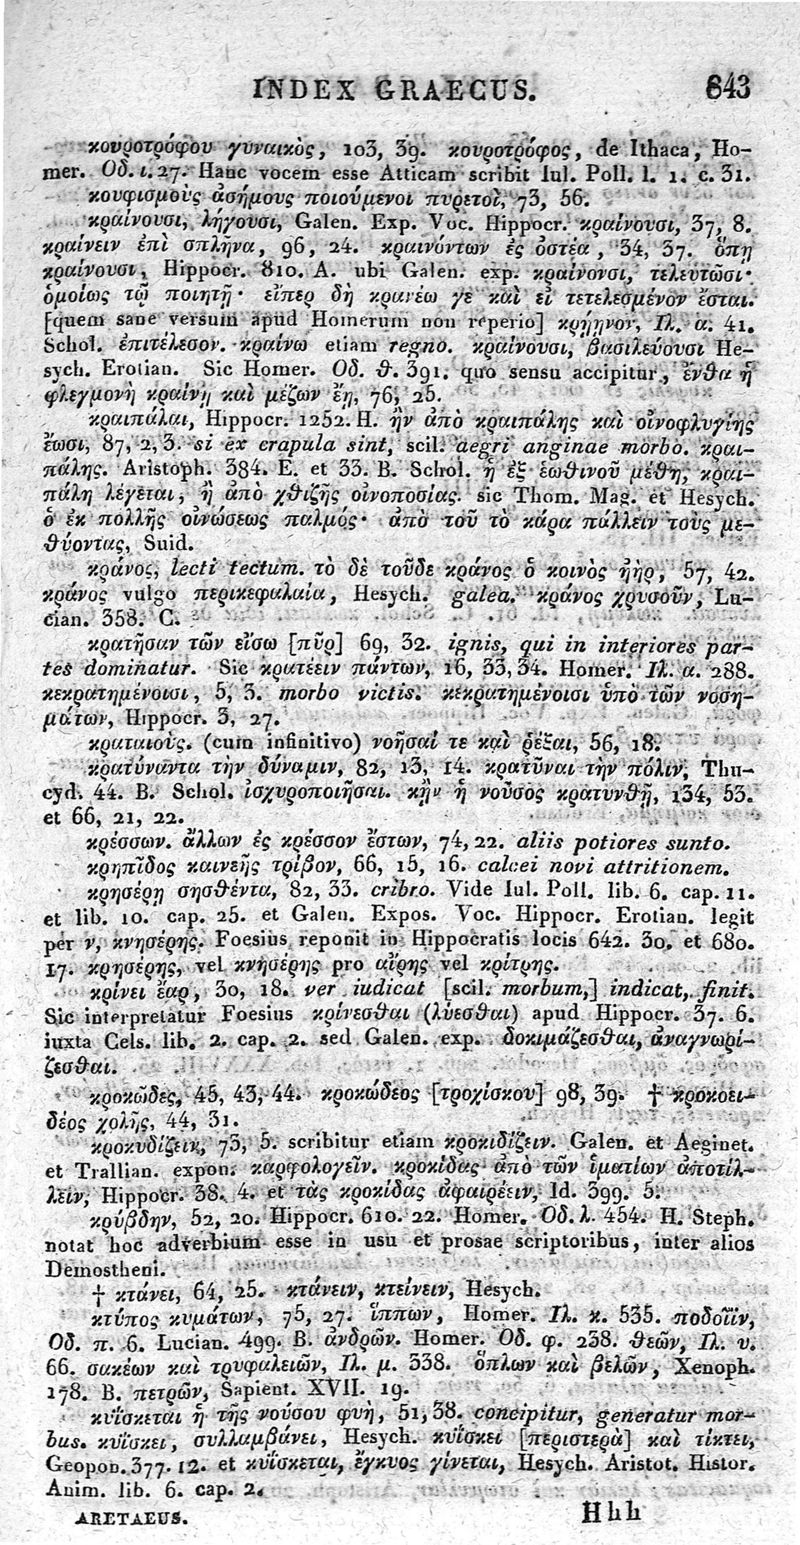 INDEX GRAECUS. 643
κουροτρόφου γυναικὸς, 103, 39. κουροτρόφος, de Ithaca, Ho-
mer. Οδ. ι. 27. Hanc vocem esse Atticam scribit Iul. Poll. l. 1. c. 31.
κουφισμοὺς ἀσήμους ποιούμενοι πυρετοὶ, 73, 56.
κραίνουσι, λήγουσι, Galen. Exp. Voc. Hippocr. κραίνουσι, 37, 8.
κραίνειν ἐπὶ σπλῆνα, 96, 24. κραινόντων ἐς ὀστέα, 34, 37. ὅπῃ
κραίνουσι, Hippocr. 810. A. ubi Galen. exp. κραίνουσι, τελευτῶσι·
ὁμοίως τῷ ποιητῇ· εἴπερ δὴ κρανέω γε καὶ εἰ τετελεσμένον ἔσται.
[quem sane versum apud Homerum non reperio] κρήηνον, Ιλ. α. 41.
Schol. ἐπιτέλεσον. κραίνω etiam regno. κραίνουσι, βασιλεύουσι He-
sych. Erotian. Sic Homer. Οδ. θ. 391. quo sensu accipitur, ἔνθα ἡ
φλεγμονὴ κραίνῃ καὶ μέζων ἔῃ, 76, 25.
κραιπάλαι, Hippocr. 1252. H. ἢν ἀπὸ κραιπάλης καὶ οἰνοφλυγίης
ἔωσι, 87, 2, 3. si ex crapula sint, scil. aegri anginae morbo. κραι-
πάλης. Aristoph. 384. E. et 33. B. Schol. ἡ ἐξ ἑωθινοῦ μέθη, κραι-
πάλη λέγεται, ἢ ἀπὸ χθιζῆς οἰνοποσίας. sic Thom. Mag. et Hesych.
ὁ ἐκ πολλῆς οἰνώσεως παλμός· ἀπὸ τοῦ τὸ κάρα πάλλειν τοὺς με-
θύοντας, Suid.
κράνος, lecti tectum. τὸ δὲ τοῦδε κράνος ὁ κοινὸς ἠὴρ, 57, 42.
κράνος vulgo περικεφαλαία, Hesych. galea. κράνος χρυσοῦν, Lu-
cian. 358. C.
κρατῆσαν τῶν εἴσω [πῦρ] 69, 32. ignis, qui in interiores par-
tes dominatur. Sic κρατέειν πάντων, 16, 33, 34. Homer. Ιλ. α. 288.
κεκρατημένοισι, 5, 3. morbo victis. κεκρατημένοισι ὑπὸ τῶν νοση-
μάτων, Hippocr. 3, 27.
κραταιοὺς. (cum infinitivo) νοῆσαί τε καὶ ῥέξαι, 56, 18.
κρατύναντα τὴν δύναμιν, 82, 13, 14. κρατῦναι τὴν πόλιν, Thu-
cyd. 44. B. Schol. ἰσχυροποιῆσαι. κἢν ἡ νοῦσος κρατυνθῇ, 134, 53.
et 66, 21, 22.
κρέσσων. ἄλλων ἐς κρέσσον ἔστων, 74, 22. aliis potiores sunto.
κρηπῖδος καινεῆς τρίβον, 66, 15, 16. calcei novi attritionem.
κρησέρῃ σησθέντα, 82, 33. cribro. Vide Iul. Poll. lib. 6. cap. 11.
et lib. 10. cap. 25. et Galen. Expos. Voc. Hippocr. Erotian. legit
per ν, κνησέρης. Foesius reponit in Hippocratis locis 642. 30. et 680.
17. κρησέρης, vel κνησέρης pro αἴρης vel κρίτρης.
κρίνει ἔαρ, 30, 18. ver iudicat [scil. morbum,] indicat, finit.
Sic interpretatur Foesius κρίνεσθαι (λύεσθαι) apud Hippocr. 37. 6.
iuxta Cels. lib. 2. cap. 2. sed Galen. exp. δοκιμάζεσθαι, ἀναγνωρί-
ζεσθαι.
κροκῶδες, 45, 43, 44. κροκώδεος [τροχίσκου] 98, 39. † κροκοει-
δέος χολῆς, 44, 31.
κροκυδίζειν, 73, 5. scribitur etiam κροκιδίζειν. Galen. et Aeginet.
et Trallian. expon. καρφολογεῖν. κροκίδας ἀπὸ τῶν ἱματίων ἀποτίλ-
λειν, Hippocr. 38. 4. et τὰς κροκίδας ἀφαιρέειν, Id. 399. 5.
κρύβδην, 52, 20. Hippocr. 610. 22. Homer. Οδ. λ. 454. H. Steph.
notat hoc adverbium esse in usu et prosae scriptoribus, inter alios
Demostheni.
† κτάνει, 64, 25. κτάνειν, κτείνειν, Hesych.
κτύπος κυμάτων, 75, 27. ἵππων, Homer. Ιλ. κ. 535. ποδοῖϊν,
Οδ. π. 6. Lucian. 499. B. ἀνδρῶν. Homer. Οδ. φ. 238. θεῶν, Ιλ. υ.
66. σακέων καὶ τρυφαλειῶν, Ιλ. μ. 338. ὅπλων καὶ βελῶν, Xenoph.
178. B. πετρῶν, Sapient. XVII. 19.
κυΐσκεται ἡ τῆς νούσου φυὴ, 51, 38. concipitur, generatur mor-
bus. κυΐσκει, συλλαμβάνει, Hesych. κυΐσκει [περιστερὰ] καὶ τίκτει,
Geopon. 377. 12. et κυΐσκεται, ἔγκυος γίνεται, Hesych. Aristot. Histor.
Anim. lib. 6. cap. 2.
ARETAEUS. Hhh